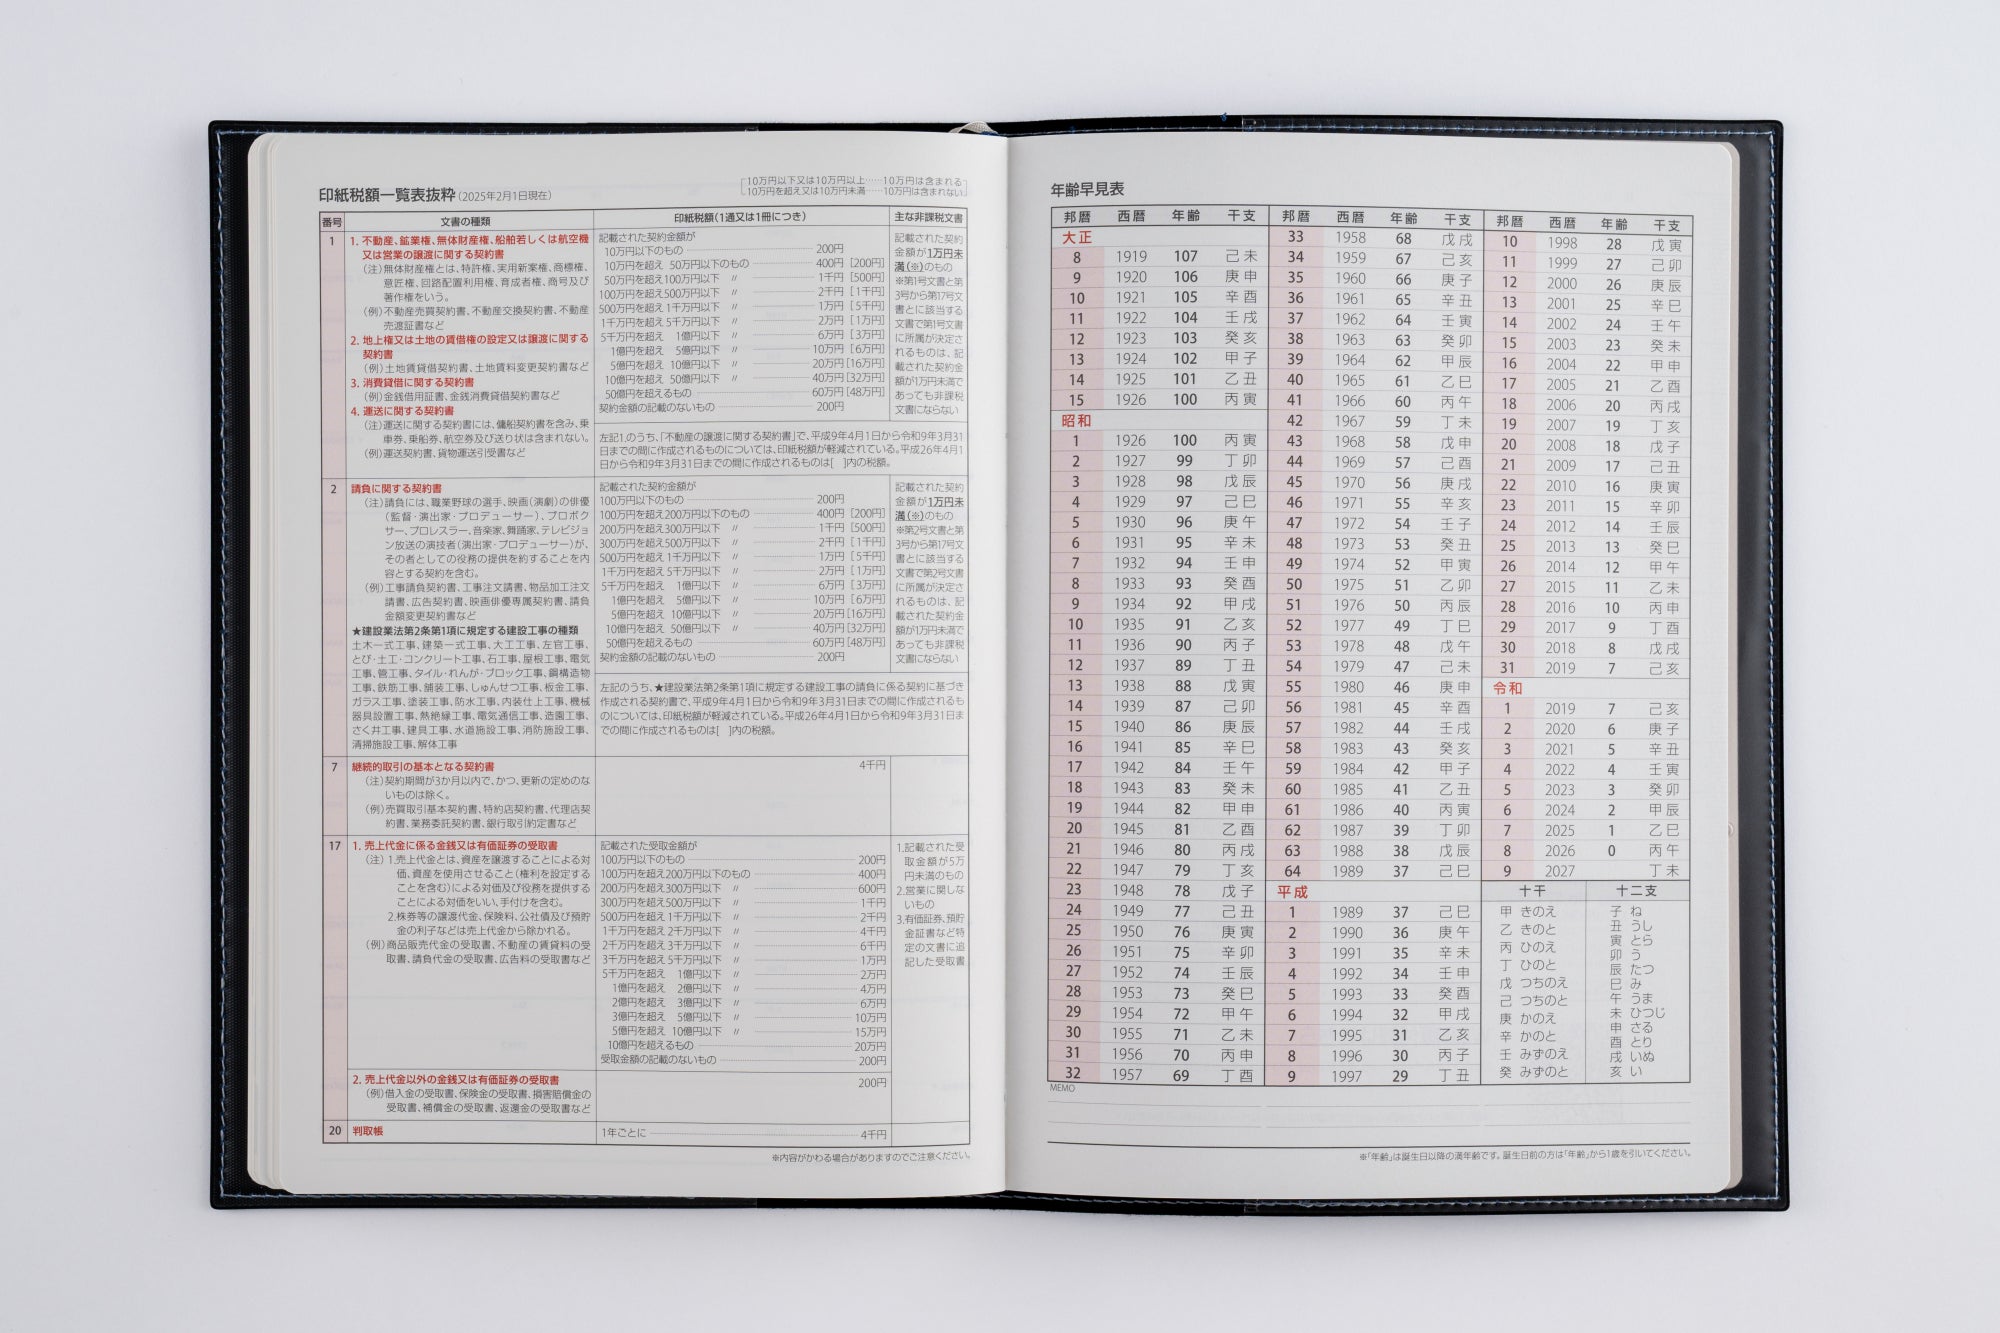 印紙税額一覧表抜粋(2025年2月1日現在)
10万円以下又は10万円以上……10万円は含まれる
10万円を超え又は10万円未満……10万円は含まれない
番号 文書の種類 印紙税額(1通又は1冊につき) 主な非課税文書
1
1. 不動産、鉱業権、無体財産権、船舶若しくは航空機
又は営業の譲渡に関する契約書
(注)無体財産権とは、特許権、実用新案権、商標権、
意匠権、回路配置利用権、育成者権、商号及び
著作権をいう。
(例)不動産売買契約書、不動産交換契約書、不動産
売渡証書など
2. 地上権又は土地の賃借権の設定又は譲渡に関する
契約書
(例)土地賃貸借契約書、土地賃料変更契約書など
3. 消費貸借に関する契約書
(例)金銭借用証書、金銭消費貸借契約書など
4. 運送に関する契約書
(注)運送に関する契約書には、傭船契約書を含み、乗
車券、乗船券、航空券及び送り状は含まれない。
(例)運送契約書、貨物運送引受書など
記載された契約金額が
10万円以下のもの 200円
10万円を超え 50万円以下のもの 400円 [200円]
50万円を超え100万円以下 〃 1千円 [500円]
100万円を超え500万円以下 〃 2千円 [1千円]
500万円を超え1千万円以下 〃 1万円 [5千円]
1千万円を超え5千万円以下 〃 2万円 [1万円]
5千万円を超え 1億円以下 〃 6万円 [3万円]
1億円を超え 5億円以下 〃 10万円 [6万円]
5億円を超え 10億円以下 〃 20万円[16万円]
10億円を超え 50億円以下 〃 40万円[32万円]
50億円を超えるもの 60万円[48万円]
契約金額の記載のないもの 200円
左記1.のうち、「不動産の譲渡に関する契約書」で、平成9年4月1日から令和9年3月31
日までの間に作成されるものについては、印紙税額が軽減されている。平成26年4月1
日から令和9年3月31日までの間に作成されるものは[ ]内の税額。
記載された契約
金額が1万円未
満(※)のもの
※第1号文書と第
3号から第17号文
書とに該当する
文書で第1号文書
に所属が決定さ
れるものは、記
載された契約金
額が1万円未満で
あっても非課税
文書にならない
2
請負に関する契約書
(注)請負には、職業野球の選手、映画(演劇)の俳優
(監督・演出家・プロデューサー)、プロボク
サー、プロレスラー、音楽家、舞踊家、テレビジョ
ン放送の演技者(演出家・プロデューサー)が、
その者としての役務の提供を約することを内
容とする契約を含む。
(例)工事請負契約書、工事注文請書、物品加工注文
請書、広告契約書、映画俳優専属契約書、請負
金額変更契約書など
★建設業法第2条第1項に規定する建設工事の種類
土木一式工事、建築一式工事、大工工事、左官工事、
とび・土工・コンクリート工事、石工事、屋根工事、電気
工事、管工事、タイル・れんが・ブロック工事、鋼構造物
工事、鉄筋工事、舗装工事、しゅんせつ工事、板金工事、
ガラス工事、塗装工事、防水工事、内装仕上工事、機械
器具設置工事、熱絶縁工事、電気通信工事、造園工事、
さく井工事、建具工事、水道施設工事、消防施設工事、
清掃施設工事、解体工事
記載された契約金額が
100万円以下のもの 200円
100万円を超え200万円以下のもの 400円 [200円]
200万円を超え300万円以下 〃 1千円 [500円]
300万円を超え500万円以下 〃 2千円 [1千円]
500万円を超え1千万円以下 〃 1万円 [5千円]
1千万円を超え5千万円以下 〃 2万円 [1万円]
5千万円を超え 1億円以下 〃 6万円 [3万円]
1億円を超え 5億円以下 〃 10万円 [6万円]
5億円を超え 10億円以下 〃 20万円[16万円]
10億円を超え 50億円以下 〃 40万円[32万円]
50億円を超えるもの 60万円[48万円]
契約金額の記載のないもの 200円
左記のうち、★建設業法第2条第1項に規定する建設工事の請負に係る契約に基づき
作成される契約書で、平成9年4月1日から令和9年3月31日までの間に作成されるも
のについては、印紙税額が軽減されている。平成26年4月1日から令和9年3月31日ま
での間に作成されるものは[ ]内の税額。
記載された契約
金額が1万円未
満(※)のもの
※第2号文書と第
3号から第17号文
書とに該当する
文書で第2号文書
に所属が決定さ
れるものは、記
載された契約金
額が1万円未満で
あっても非課税
文書にならない
7
継続的取引の基本となる契約書
(注)契約期間が3か月以内で、かつ、更新の定めのな
いものは除く。
(例)売買取引基本契約書、特約店契約書、代理店契
約書、業務委託契約書、銀行取引約定書など
4千円
17
1. 売上代金に係る金銭又は有価証券の受取書
(注) 1.売上代金とは、資産を譲渡することによる対
価、資産を使用させること(権利を設定する
ことを含む)による対価及び役務を提供する
ことによる対価をいい、手付けを含む。
2.株券等の譲渡代金、保険料、公社債及び預貯
金の利子などは売上代金から除かれる。
(例)商品販売代金の受取書、不動産の賃貸料の受
取書、請負代金の受取書、広告料の受取書など
記載された受取金額が
100万円以下のもの 200円
100万円を超え200万円以下のもの 400円
200万円を超え300万円以下 〃 600円
300万円を超え500万円以下 〃 1千円
500万円を超え1千万円以下 〃 2千円
1千万円を超え2千万円以下 〃 4千円
2千万円を超え3千万円以下 〃 6千円
3千万円を超え5千万円以下 〃 1万円
5千万円を超え 1億円以下 〃 2万円
1億円を超え 2億円以下 〃 4万円
2億円を超え 3億円以下 〃 6万円
3億円を超え 5億円以下 〃 10万円
5億円を超え 10億円以下 〃 15万円
10億円を超えるもの 20万円
受取金額の記載のないもの 200円
1.記載された受
取金額が5万
円未満のもの
2.営業に関しな
いもの
3.有価証券、預貯
金証書など特
定の文書に追
記した受取書
2. 売上代金以外の金銭又は有価証券の受取書
(例)借入金の受取書、保険金の受取書、損害賠償金の
受取書、補償金の受取書、返還金の受取書など
200円
20 判取帳 1年ごとに 4千円
※内容がかわる場合がありますのでご注意ください。
年齢早見表
邦暦 西暦 年齢 干支
大正
8 1919 107 己未
9 1920 106 庚申
10 1921 105 辛酉
11 1922 104 壬戌
12 1923 103 癸亥
13 1924 102 甲子
14 1925 101 乙丑
15 1926 100 丙寅
昭和
1 1926 100 丙寅
2 1927 99 丁卯
3 1928 98 戊辰
4 1929 97 己巳
5 1930 96 庚午
6 1931 95 辛未
7 1932 94 壬申
8 1933 93 癸酉
9 1934 92 甲戌
10 1935 91 乙亥
11 1936 90 丙子
12 1937 89 丁丑
13 1938 88 戊寅
14 1939 87 己卯
15 1940 86 庚辰
16 1941 85 辛巳
17 1942 84 壬午
18 1943 83 癸未
19 1944 82 甲申
20 1945 81 乙酉
21 1946 80 丙戌
22 1947 79 丁亥
23 1948 78 戊子
24 1949 77 己丑
25 1950 76 庚寅
26 1951 75 辛卯
27 1952 74 壬辰
28 1953 73 癸巳
29 1954 72 甲午
30 1955 71 乙未
31 1956 70 丙申
32 1957 69 丁酉
邦暦 西暦 年齢 干支
33 1958 68 戊戌
34 1959 67 己亥
35 1960 66 庚子
36 1961 65 辛丑
37 1962 64 壬寅
38 1963 63 癸卯
39 1964 62 甲辰
40 1965 61 乙巳
41 1966 60 丙午
42 1967 59 丁未
43 1968 58 戊申
44 1969 57 己酉
45 1970 56 庚戌
46 1971 55 辛亥
47 1972 54 壬子
48 1973 53 癸丑
49 1974 52 甲寅
50 1975 51 乙卯
51 1976 50 丙辰
52 1977 49 丁巳
53 1978 48 戊午
54 1979 47 己未
55 1980 46 庚申
56 1981 45 辛酉
57 1982 44 壬戌
58 1983 43 癸亥
59 1984 42 甲子
60 1985 41 乙丑
61 1986 40 丙寅
62 1987 39 丁卯
63 1988 38 戊辰
64 1989 37 己巳
平成
1 1989 37 己巳
2 1990 36 庚午
3 1991 35 辛未
4 1992 34 壬申
5 1993 33 癸酉
6 1994 32 甲戌
7 1995 31 乙亥
8 1996 30 丙子
9 1997 29 丁丑
邦暦 西暦 年齢 干支
10 1998 28 戊寅
11 1999 27 己卯
12 2000 26 庚辰
13 2001 25 辛巳
14 2002 24 壬午
15 2003 23 癸未
16 2004 22 甲申
17 2005 21 乙酉
18 2006 20 丙戌
19 2007 19 丁亥
20 2008 18 戊子
21 2009 17 己丑
22 2010 16 庚寅
23 2011 15 辛卯
24 2012 14 壬辰
25 2013 13 癸巳
26 2014 12 甲午
27 2015 11 乙未
28 2016 10 丙申
29 2017 9 丁酉
30 2018 8 戊戌
31 2019 7 己亥
令和
1 2019 7 己亥
2 2020 6 庚子
3 2021 5 辛丑
4 2022 4 壬寅
5 2023 3 癸卯
6 2024 2 甲辰
7 2025 1 乙巳
8 2026 0 丙午
9 2027 丁未
十干
甲 きのえ
乙 きのと
丙 ひのえ
丁 ひのと
戊 つちのえ
己 つちのと
庚 かのえ
辛 かのと
壬 みずのえ
癸 みずのと
十二支
子 ね
丑 うし
寅 とら
卯 う
辰 たつ
巳 み
午 うま
未 ひつじ
申 さる
酉 とり
戌 いぬ
亥 い
MEMO
※「年齢」は誕生日以降の満年齢です。誕生日前の方は「年齢」から1歳を引いてください。